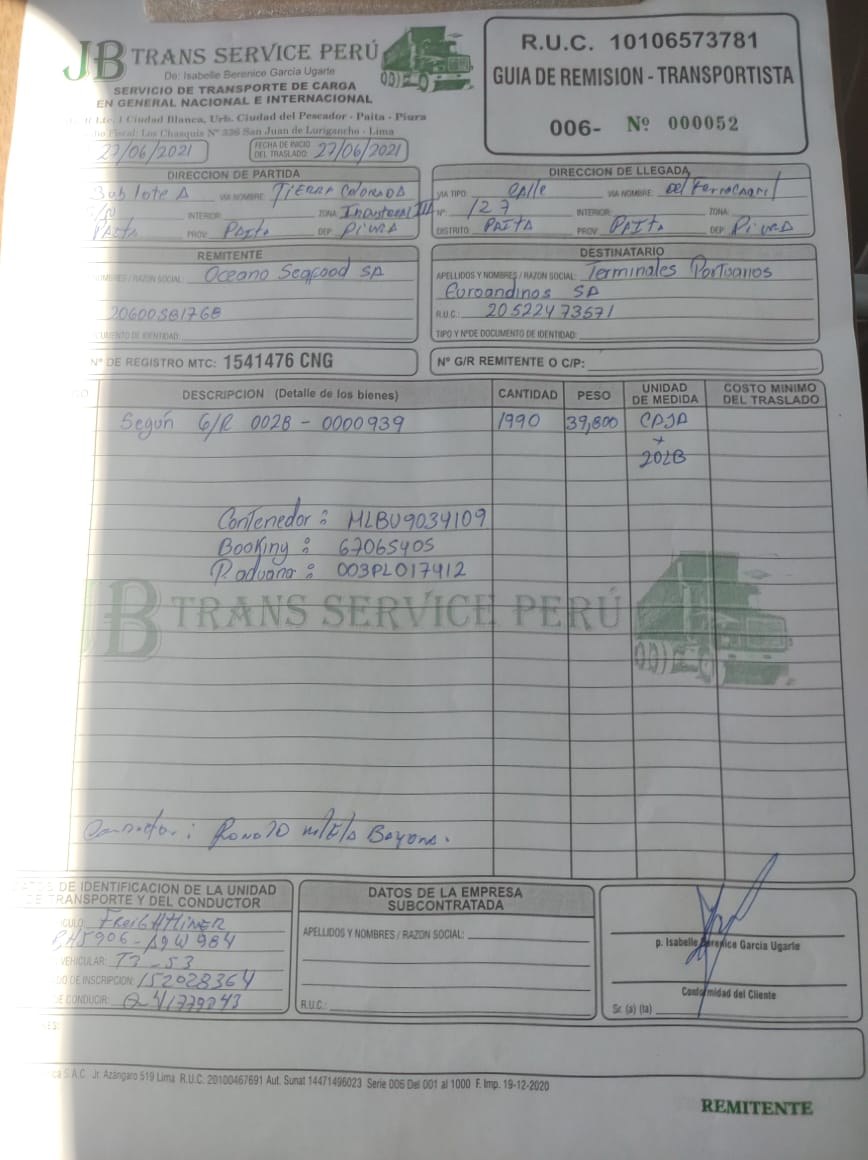 JB TRANS SERVICE PERÚ
De: Isabelle Berenice Garcia Ugarte
SERVICIO DE TRANSPORTE DE CARGA
EN GENERAL NACIONAL E INTERNACIONAL
Lte. 1 Ciudad Blanca, Urb. Ciudad del Pescador - Paita - Piura
Fiscal: Los Chasquis Nº 336 San Juan de Lurigancho - Lima
R.U.C. 10106573781
GUIA DE REMISION - TRANSPORTISTA
006- Nº 000052
27/06/2021
FECHA DE INICIO DEL TRASLADO: 27/06/2021
DIRECCION DE PARTIDA
Sub lote A VIA NOMBRE: TIERRA COLORADA
S/N INTERIOR: ZONA: Industrial III
PAITA PROV: PAITA DEP: PIURA
DIRECCION DE LLEGADA
VIA TIPO: Calle VIA NOMBRE: Del Ferrocarril
Nº: 127 INTERIOR: ZONA:
DISTRITO: PAITA PROV: PAITA DEP: PIURA
REMITENTE
NOMBRES / RAZON SOCIAL: Oceano Seafood SA
20600581768
DOCUMENTO DE IDENTIDAD:
DESTINATARIO
APELLIDOS Y NOMBRES / RAZON SOCIAL: Terminales Portuarios
Euroandinos SA
R.U.C.: 20522473571
TIPO Y NºDE DOCUMENTO DE IDENTIDAD:
Nº DE REGISTRO MTC: 1541476 CNG
Nº G/R REMITENTE O C/P:
DESCRIPCION (Detalle de los bienes) CANTIDAD PESO UNIDAD DE MEDIDA COSTO MINIMO DEL TRASLADO
Según G/R 002B - 0000939 1990 39,800 CAJA
x
20LB
Contenedor : MLBU9034109
Booking : 67065405
P. aduana : 003PL017412
JB TRANS SERVICE PERÚ
DATOS DE IDENTIFICACION DE LA UNIDAD
DE TRANSPORTE Y DEL CONDUCTOR
FREIGHTLINER
VEHICULAR: T3-S3
DE INSCRIPCION: 152028364
DE CONDUCIR: Q41779843
DATOS DE LA EMPRESA
SUBCONTRATADA
APELLIDOS Y NOMBRES / RAZON SOCIAL:
R.U.C.:
p. Isabelle Berenice Garcia Ugarte
Conformidad del Cliente
Sr. (a) (ta)
S.A.C. Jr. Azángaro 519 Lima R.U.C. 20100467691 Aut. Sunat 14471496023 Serie 006 Del 001 al 1000 F. Imp. 19-12-2020
REMITENTE